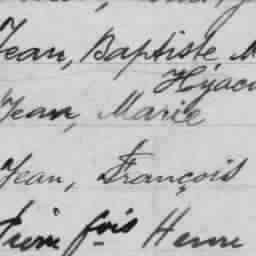 Jean, Baptiste, M
Hyaci
Jean, Marie
Jean, François
Pierre fois Henri